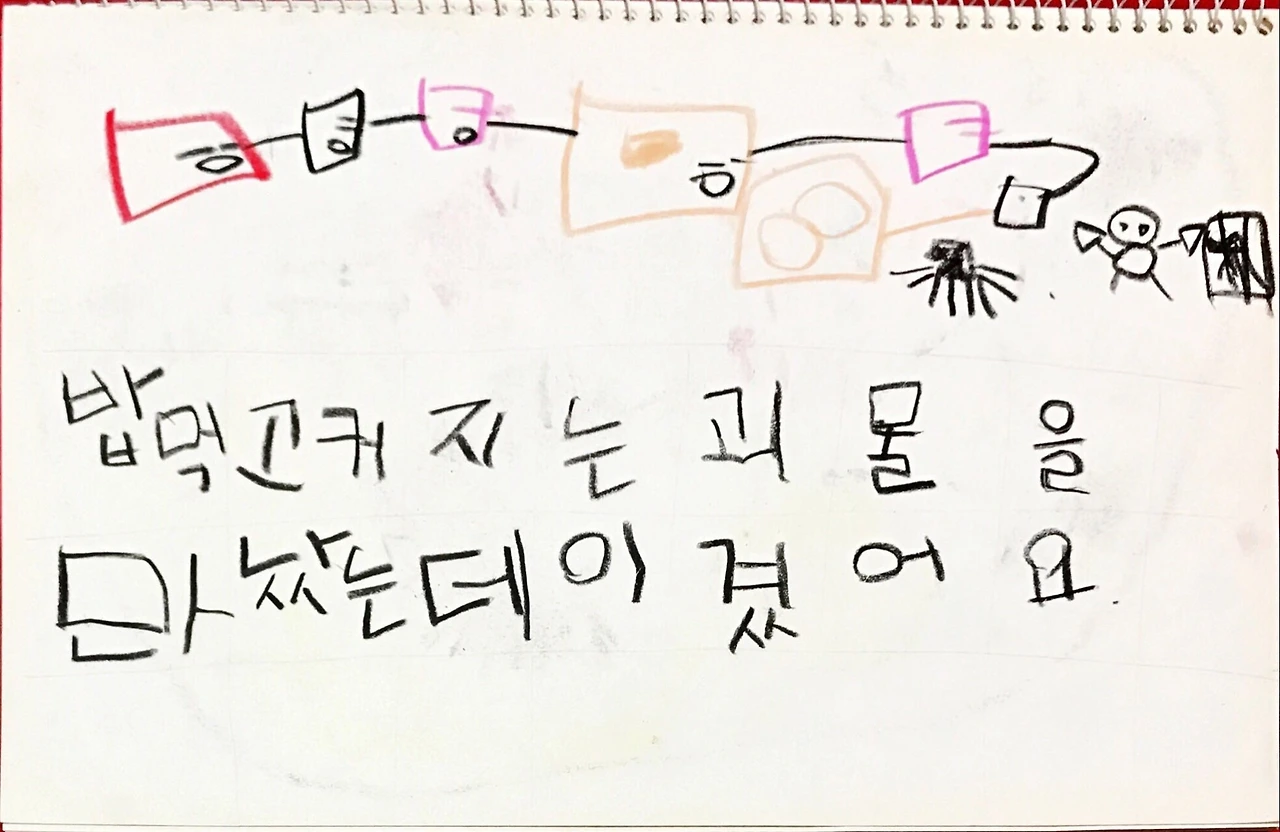 밥먹고커지는괴물을
만났는데이겼어요.